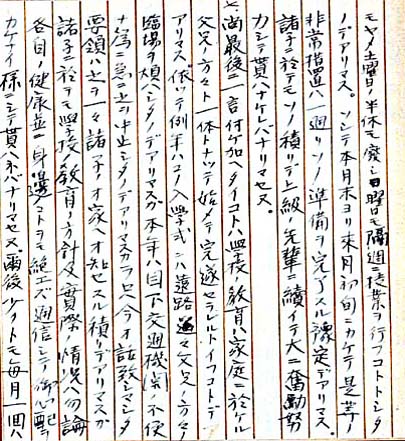 モヤメ土曜日ノ半休モ廃シ日曜日モ隔週ニ授業ヲ行フコトトシタ
ノデアリマス。ソシテ本月末ヨリ来月初旬ニカケテ是等ノ
非常措置ハ一通リソノ準備ヲ完了スル豫定デアリマス。
諸子ニ於テモソノ積リデ上級ノ先輩ニ續イテ大ニ奮励努
力シテ貰ハナケレバナリマセヌ。
尚最後ニ一言付ケ加ヘタイコトハ學校教育ハ家庭ニ於ケル
父兄ノ方々ト一体トナッテ始メテ完遂セラルルトイフコトデ
アリマス。依ツテ例年ハコノ入學式ニハ遠路 々父兄ノ方々ノ
臨場ヲ煩ハシタノデアリマスガ本年ハ目下交通機関ノ不便
ナ為ニ急ニ之ヲ中止シタノデアリマスカラ只今オ話致シマシタ
要領ハ之ヲ一々諸子ノオ家ヘオ知セスル積リデアリマスガ
諸子ニ於テモ學校教育ノ方針及實際ノ情況ハ勿論
各自ノ健康並ニ身邊ノコトヲモ絶エズ通信シテ御心配ヲ
カケナイ様ニシテ貰ハネバナリマセヌ。爾後少クトモ毎月一回ハ